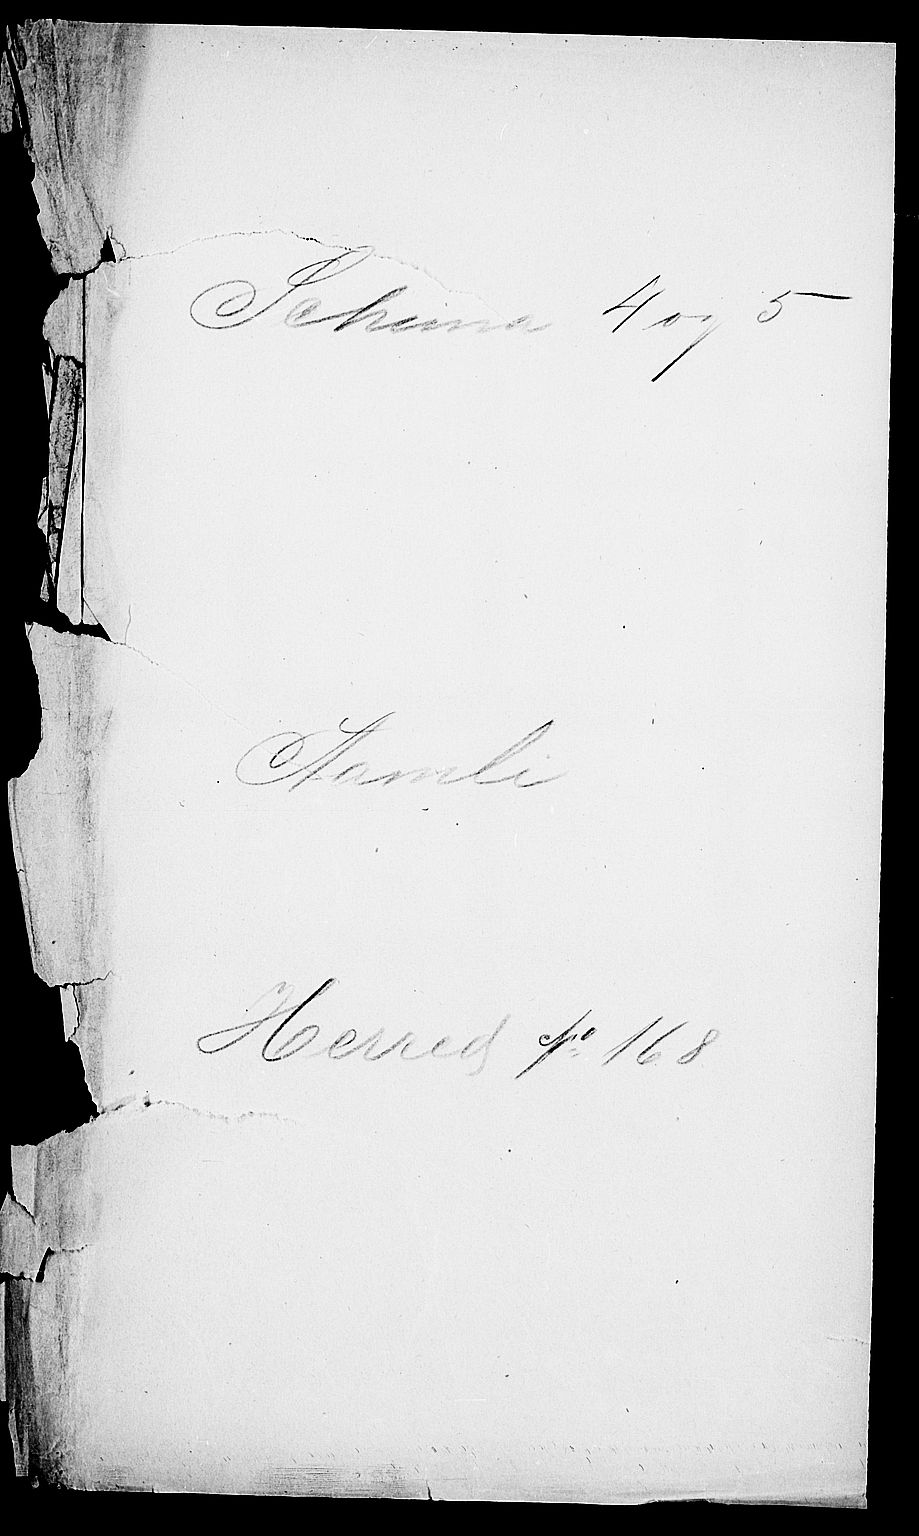 Schema 4 og 5
Aamli
Herred No 168